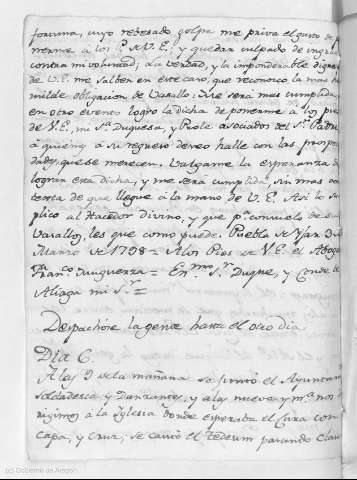 fortuna, cuyo rebesado golpe me priva el gusto de p
nerme à los P.s de V.E.; y quedar culpado de ingra
contra mi voluntad; su verdad, y la imponderable digna
de V.E. me salben en este caso, que reconosco la mas h
milde obligacion de Vasallo. Me sera mas cumplida
en otro evento lograr la dicha de ponerme à los pies
de V.E., mi S.ra Duquesa, y Prole asociados del S.r Padre
à quienes à su regreso deseo hallen con las prospe
dades, que se merecen. Valgame la esperanza de
lograr esta dicha, y me sera cumplida, sin mas
que llegue à la mano de V.E. Asi lo su
plico al Hacedor Divino, y que p.a consuelo de sus
Vasallos, les que como puede. Puebla de Yjar 5 de
Marzo de 1798 = A los Pies de V.E. el Abog
Fran.co Junguenza = Ex.mo S.r Duque, y Conde de
Aliaga mi S.r =
Despachóse la gente hasta el otro dia
Dia 6.
A las 9 de la mañana se juntó el Ayuntam
Soldadesca y Danzantes, y a las nueve y m.a nos di
rigimos à la Iglesia donde esperaba el Cura con
Capa, y Cruz; se cantó el tedeum parando
(c) Gobierno de Aragón